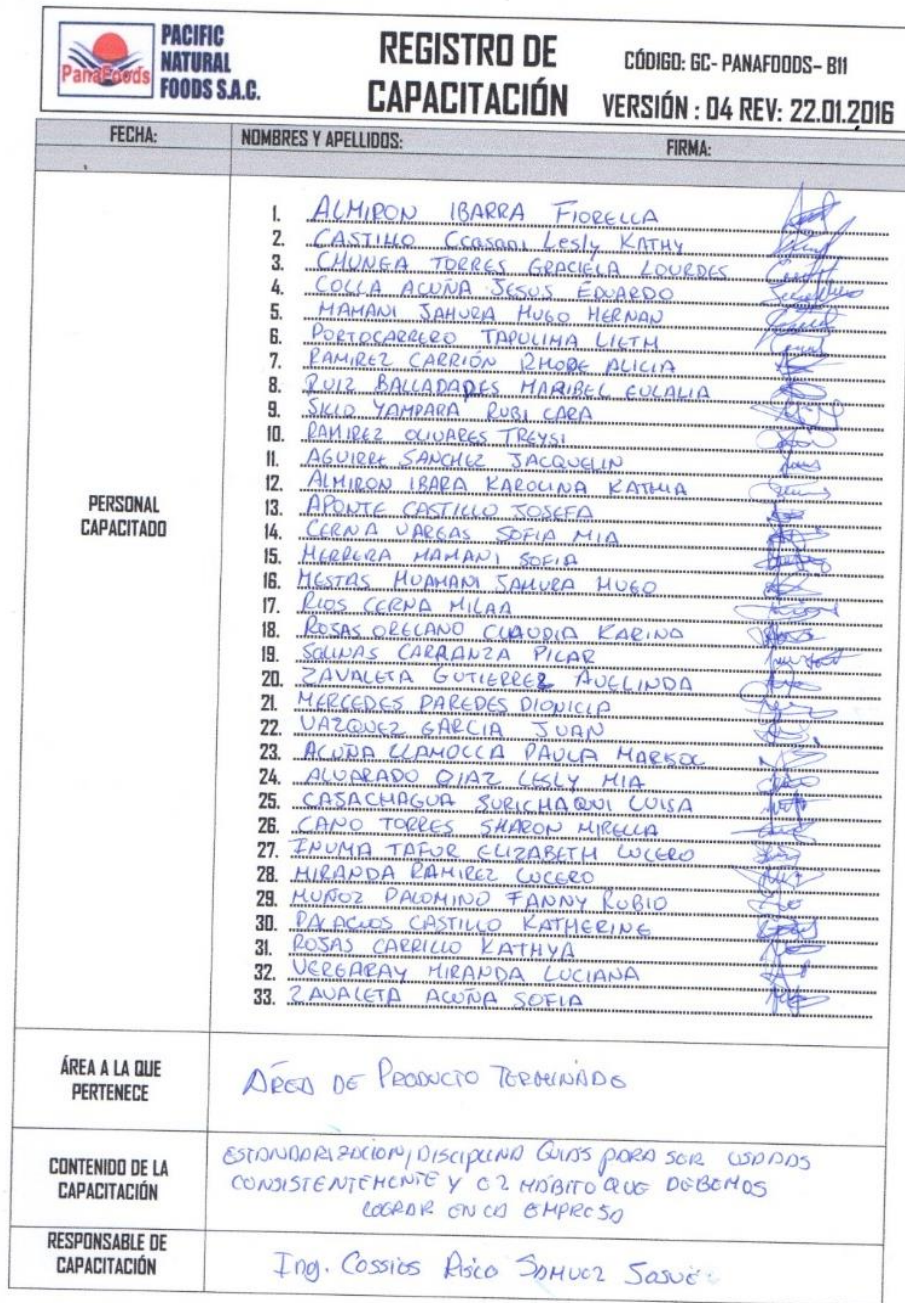 PanaFoods
PACIFIC
NATURAL
FOODS S.A.C.
REGISTRO DE
CAPACITACIÓN
CÓDIGO: GC- PANAFOODS- B11
VERSIÓN : 04 REV: 22.01.2016
FECHA: NOMBRES Y APELLIDOS: FIRMA:
PERSONAL
CAPACITADO
1. ALMIRON IBARRA FIORELLA
2. CASTILLO Ccasani Lesly KATHY
3. CHUNGA TORRES GRACIELA LOURDES
4. COLLA ACUÑA JESUS EDUARDO
5. MAMANI SAHURA HUGO HERNAN
6. PORTOCARRERO TAPULIMA LIETH
7. RAMIREZ CARRIÓN RHODE ALICIA
8. RUIZ BALLADARES MARIBEL EULALIA
9. YAMPARA RUBI CARA
10. RAMIREZ OLIVARES TREYSI
11. AGUIRRE SANCHEZ JACQUELIN
12. ALMIRON IBARA KAROLINA KATHIA
13. APONTE CASTILLO JOSEFA
14. CERNA VARGAS SOFIA MIA
15. HERRERA MAMANI SOFIA
16. MESTAS HUAMANI SAHURA HUGO
17. RIOS CERNA MILAA
18. ROSAS ORELANO CLAUDIA KARINA
19. SALINAS CARRANZA PILAR
20. ZAVALETA GUTIERREZ AVELINDA
21. MERCEDES PAREDES DIONICIA
22. VAZQUEZ GARCIA JUAN
23. ACUÑA LLAMOCCA PAULA MARISOL
24. ALVARADO DIAZ LESLY MIA
25. CASACHAGUA SURICHAQUI LUISA
26. CANO TORRES SHARON MIRELLA
27. INUMA TAFUR ELIZABETH LUCERO
28. MIRANDA RAMIREZ LUCERO
29. MUÑOZ PALOMINO FANNY RUBIO
30. PALACIOS CASTILLO KATHERINE
31. ROSAS CARRILLO KATHYA
32. VERGARAY MIRANDA LUCIANA
33. ZAVALETA ACUÑA SOFIA
ÁREA A LA QUE
PERTENECE
AREA DE PRODUCTO TERMINADO
CONTENIDO DE LA
CAPACITACIÓN
ESTANDARIZACION, DISCIPLINA GUIAS PARA SER USADAS
CONSISTENTEMENTE Y EL HÁBITO QUE DEBEMOS
LOGRAR EN LA EMPRESA
RESPONSABLE DE
CAPACITACIÓN
Ing. Cossios Risco SAMUEL JOSUÉ